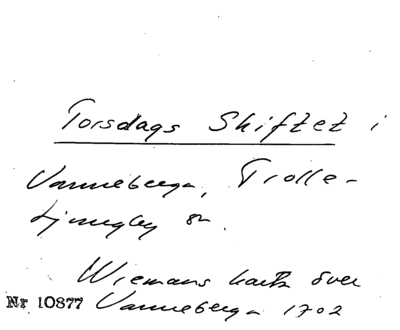 Torsdags Skiftet i
Vanneberga, Trolle-
Ljungby sn.
Wiemans karta över
Nr 10877 Vanneberga 1702